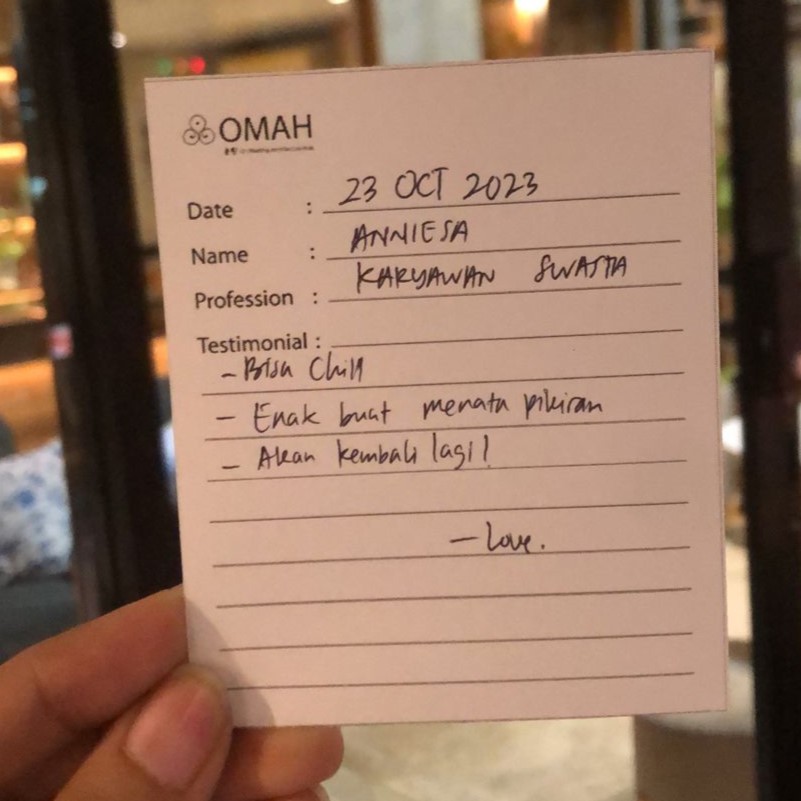 OMAH
Date : 23 OCT 2023
Name : ANNIESA
Profession : KARYAWAN SWASTA
Testimonial :
- Bisa Chill
- Enak buat menata pikiran
- Akan kembali lagi!
- Love.